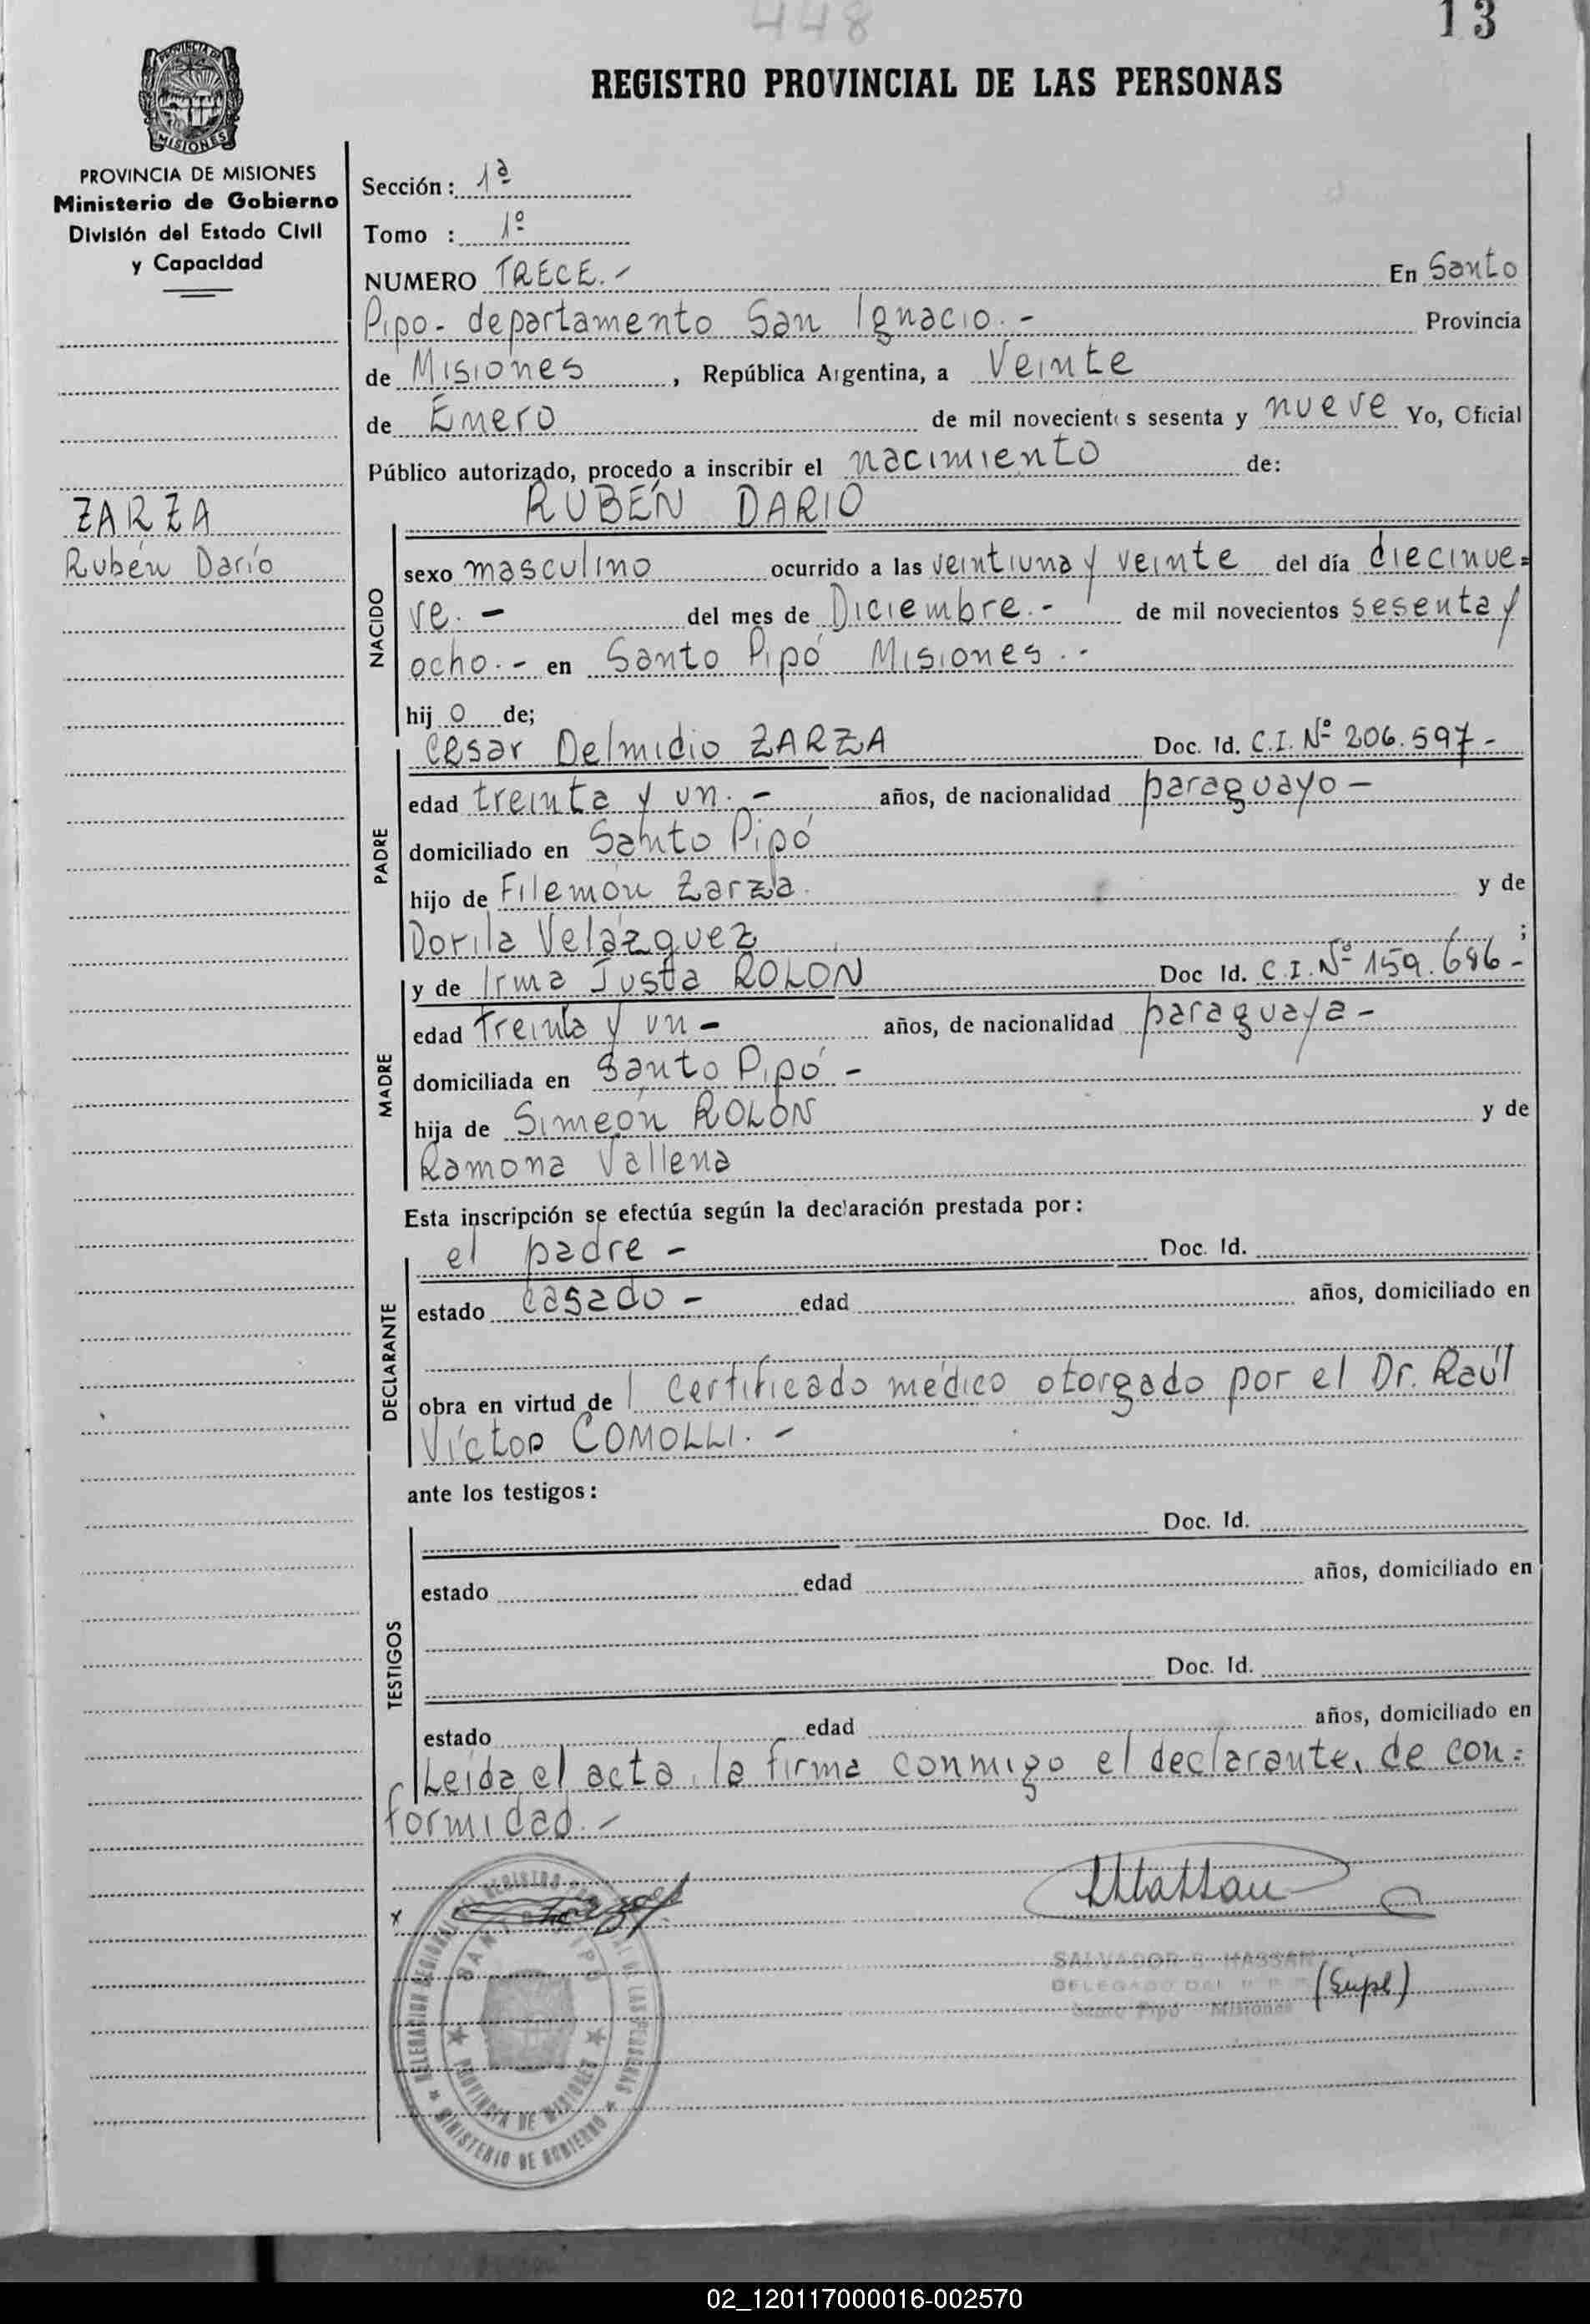 448
13
REGISTRO PROVINCIAL DE LAS PERSONAS
PROVINCIA DE MISIONES
MISIONES
PROVINCIA DE MISIONES
Ministerio de Gobierno
División del Estado Civil
y Capacidad
Sección: 1ª
Tomo : 1º
NUMERO TRECE.- En Santo
Pipo- departamento San Ignacio.- Provincia
de Misiones, República Argentina, a Veinte
de Enero de mil novecientos sesenta y nueve Yo, Oficial
Público autorizado, procedo a inscribir el nacimiento de:
ZARZA
Rubén Darío
NACIDO
RUBÉN DARIO
sexo masculino ocurrido a las veintiuna y veinte del día diecinue=
ve.- del mes de Diciembre.- de mil novecientos sesenta y
ocho.- en Santo Pipó Misiones.-
hij o de;
PADRE
Cesar Delmidio ZARZA Doc. Id. C.I. Nº 206.597-
edad treinta y un.- años, de nacionalidad paraguayo-
domiciliado en Santo Pipó
hijo de Filemón Zarza. y de
Dorila Velázquez ;
MADRE
y de Irma Justa ROLON Doc Id. C.I. Nº 159.686-
edad treinta y un- años, de nacionalidad paraguaya-
domiciliada en Santo Pipó-
hija de Simeón ROLÓN y de
Ramona Vallena
Esta inscripción se efectúa según la declaración prestada por:
DECLARANTE
el padre- Doc. Id.
estado casado- edad años, domiciliado en
obra en virtud de certificado médico otorgado por el Dr. Raúl
Víctor COMOLLI.-
ante los testigos:
TESTIGOS
Doc. Id.
estado edad años, domiciliado en
Doc. Id.
estado edad años, domiciliado en
Leída el acta, la firma conmigo el declarante, de con=
formidad.-
x
DELEGACION REGIONAL DEL REGISTRO PROVINCIAL DE LAS PERSONAS
SANTO PIPO
PROVINCIA DE MISIONES
MINISTERIO DE GOBIERNO
SALVADOR S. HASSAN
DELEGADO DEL
Santo Pipó Misiones
(Supl)
02_120117000016-002570